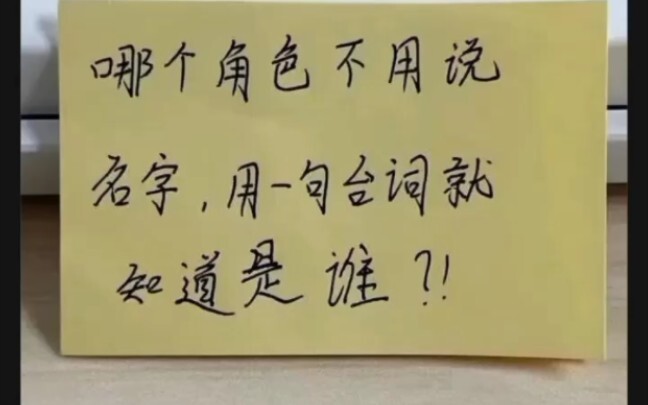 哪个角色不用说
名字，用一句台词就
知道是谁？!!